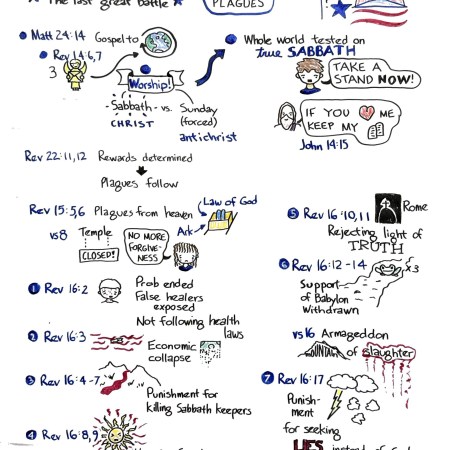 ★ The last great battle ★
PLAGUES
Matt 24:14 Gospel to
Rev 14:6,7
3
Worship!
Sabbath - vs. Sunday
CHRIST (forced)
antichrist
Whole world tested on
true SABBATH
TAKE A
STAND NOW!
IF YOU ME
KEEP MY
John 14:15
Rev 22:11,12 Rewards determined
Plagues follow
Rev 15:5,6 Plagues from heaven
Law of God
Ark
vs 8 Temple
CLOSED!
NO MORE
FORGIVE-
NESS
1 Rev 16:2 Prob ended
False healers
exposed
Not following health
laws
2 Rev 16:3 Economic
collapse
3 Rev 16:4-7
Punishment for
killing Sabbath keepers
4 Rev 16:8,9
5 Rev 16:10,11 Rome
Rejecting light of
TRUTH
6 Rev 16:12-14
x3
Support
of Babylon
Withdrawn
vs 16 Armageddon
MOUNTAIN of slaughter
7 Rev 16:17
Punish-
ment
for seeking
LIES instead of